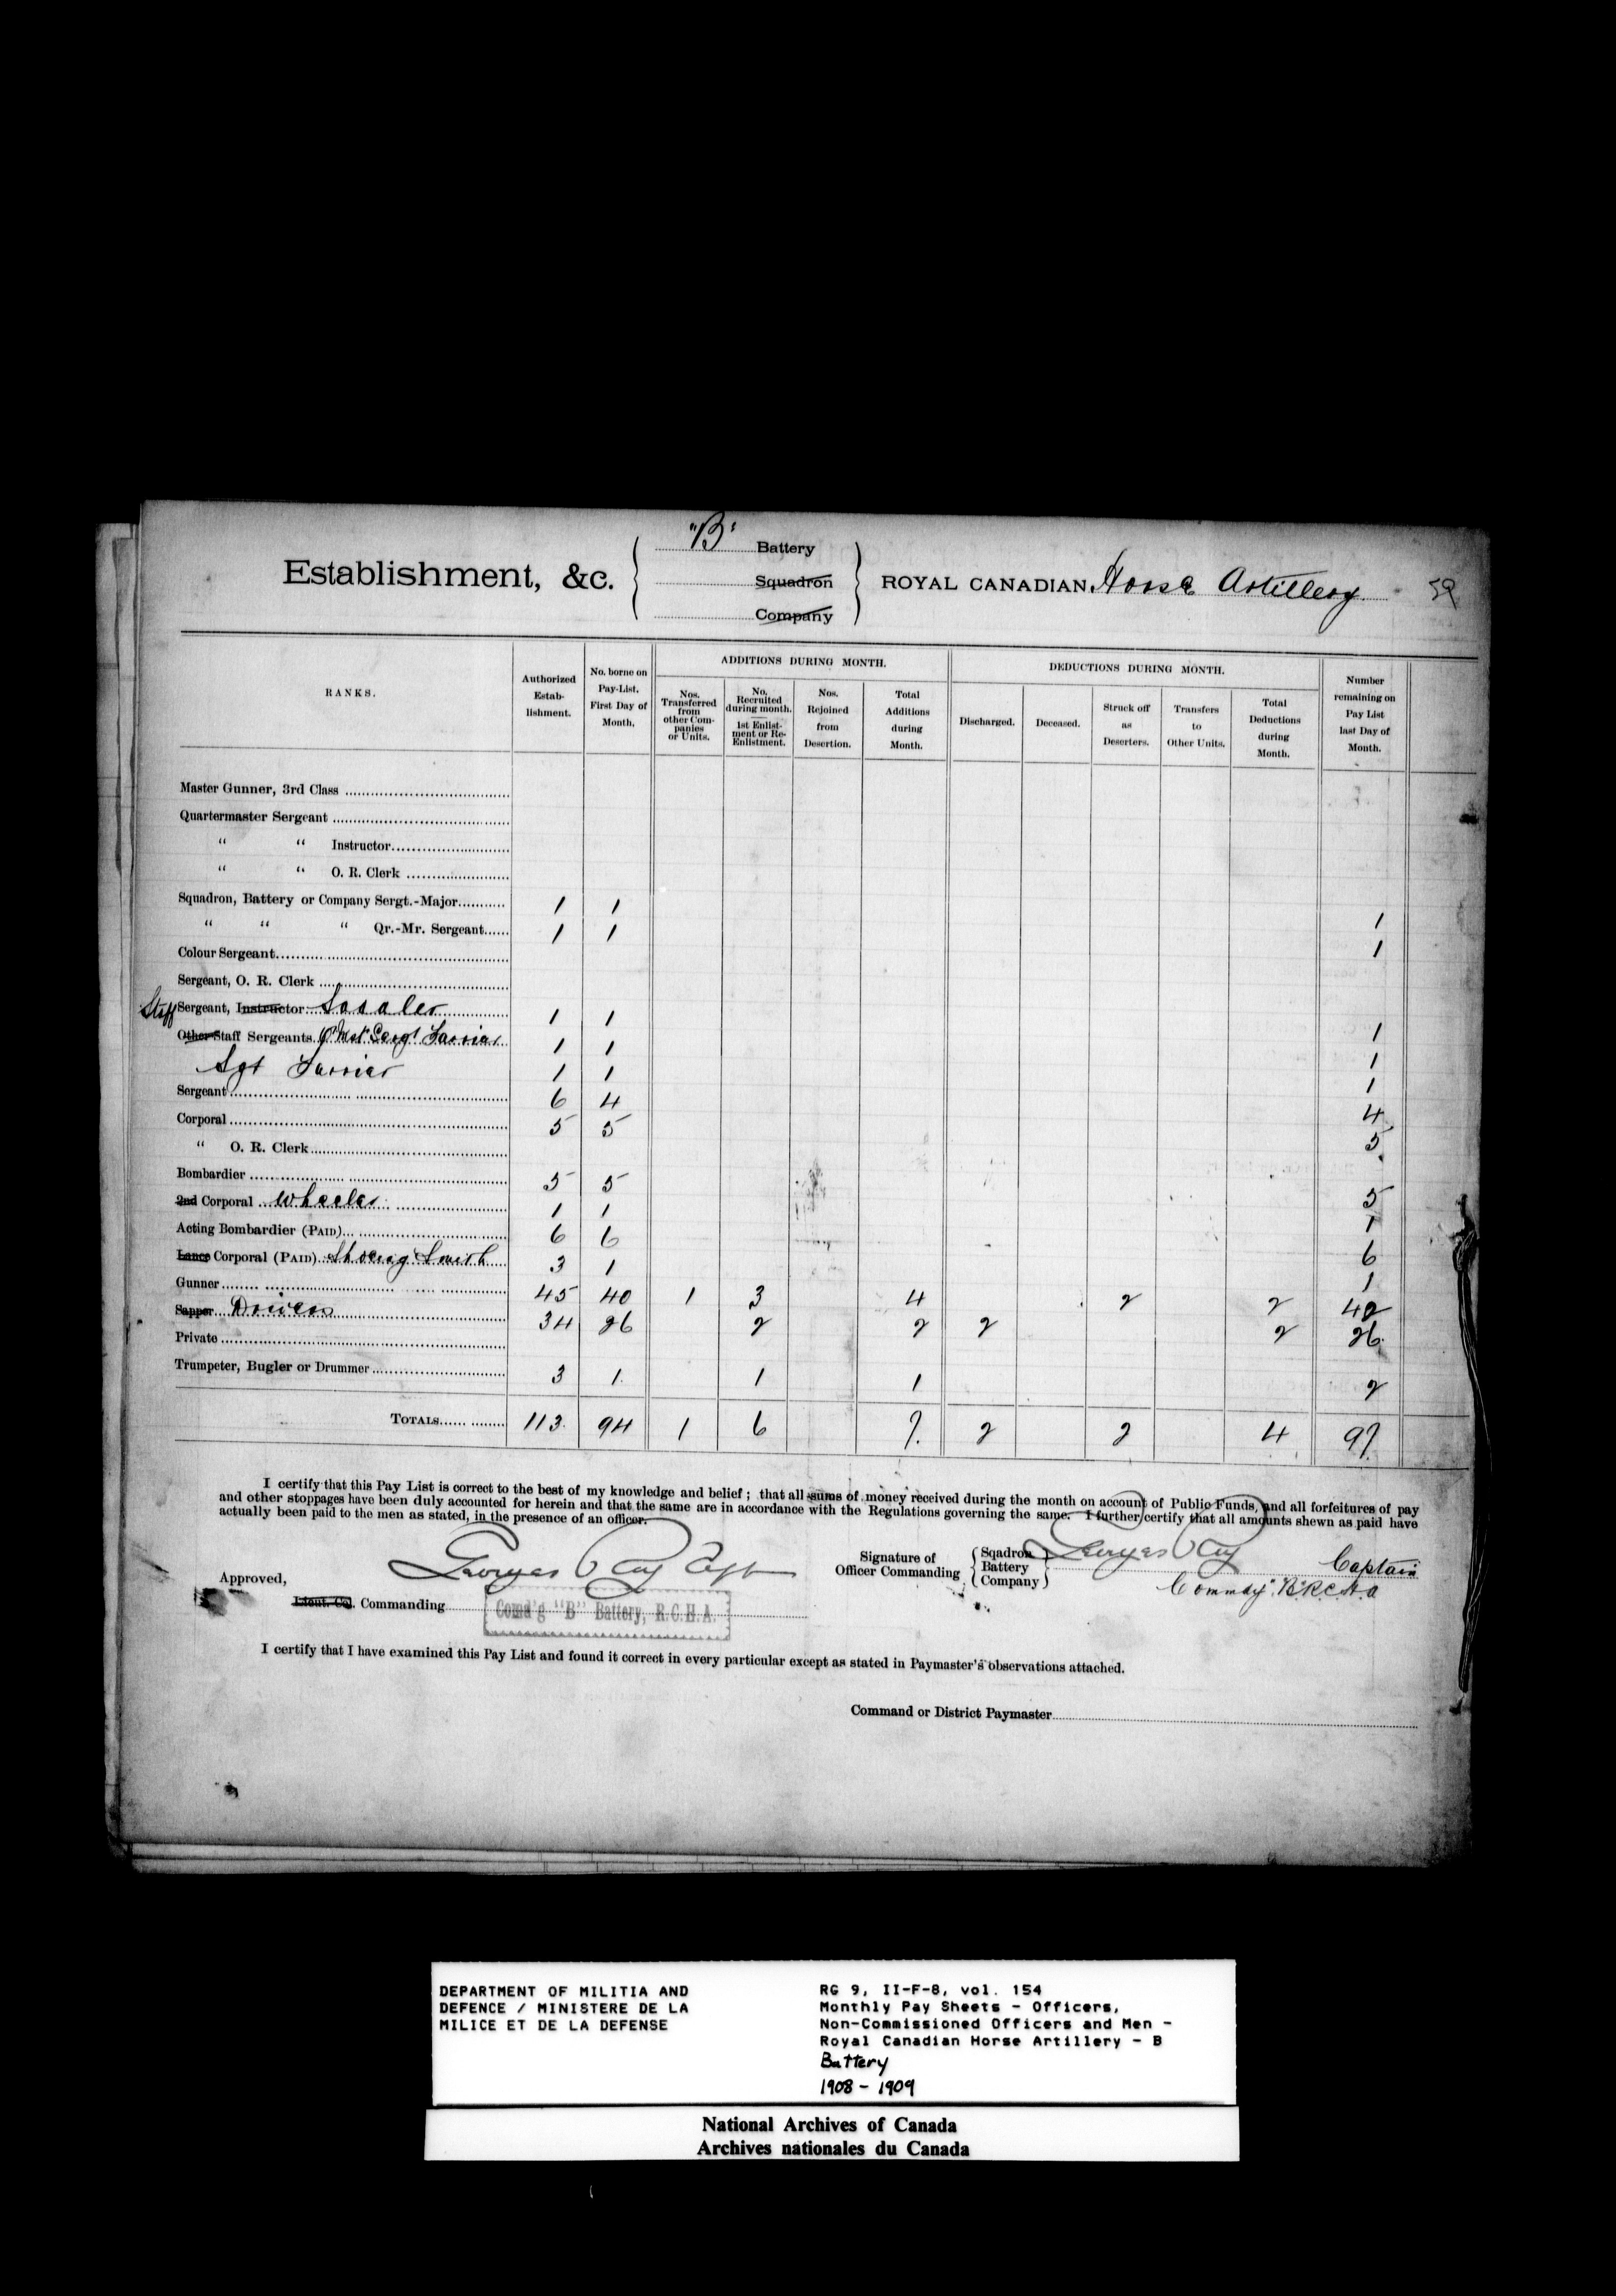 "B" Battery
Establishment, &c. Squadron ROYAL CANADIAN Horse Artillery 59
Company
RANKS.
Authorized Estab- lishment.
No. borne on Pay-List. First Day of Month.
ADDITIONS DURING MONTH.
Nos. Transferred from other Com- panies or Units.
No. Recruited during month. 1st Enlist- ment or Re- Enlistment.
Nos. Rejoined from Desertion.
Total Additions during Month.
DEDUCTIONS DURING MONTH.
Discharged.
Deceased.
Struck off as Deserters.
Transfers to Other Units.
Total Deductions during Month.
Number remaining on Pay List last Day of Month.
Master Gunner, 3rd Class
Quartermaster Sergeant
" " Instructor
" " O. R. Clerk
Squadron, Battery or Company Sergt.-Major 1 1 1
" " " Qr.-Mr. Sergeant 1 1 1
Colour Sergeant
Sergeant, O. R. Clerk
Staff Sergeant, Instructor Sadler 1 1 1
Other Staff Sergeants Sergt Farrier 1 1 1
Sgt Farrier 1 1 1
Sergeant 6 4 4
Corporal 5 5 5
" O. R. Clerk
Bombardier 5 5 5
2nd Corporal Wheeler 1 1 1
Acting Bombardier (PAID) 6 6 6
Lance Corporal (PAID) Shoeing Smith 3 1 1
Gunner 45 40 1 3 4 2 2 42
Sapper Drivers 34 26 2 2 2 2 26
Private
Trumpeter, Bugler or Drummer 3 1 1 1 2
TOTALS 113 94 1 6 7 2 2 4 97
I certify that this Pay List is correct to the best of my knowledge and belief ; that all sums of money received during the month on account of Public Funds, and all forfeitures of pay
and other stoppages have been duly accounted for herein and that the same are in accordance with the Regulations governing the same. I further certify that all amounts shewn as paid have
actually been paid to the men as stated, in the presence of an officer.
Approved, Capt
Lieut. Col. Commanding
Comd'g "B" Battery, R.C.H.A.
Signature of Officer Commanding Sqadron Battery Company Captain
Commdg "B" R.C.H.A
I certify that I have examined this Pay List and found it correct in every particular except as stated in Paymaster's observations attached.
Command or District Paymaster
DEPARTMENT OF MILITIA AND
DEFENCE / MINISTERE DE LA
MILICE ET DE LA DEFENSE
RG 9, II-F-8, vol. 154
Monthly Pay Sheets - Officers,
Non-Commissioned Officers and Men -
Royal Canadian Horse Artillery - B
Battery
1908 - 1909
National Archives of Canada
Archives nationales du Canada